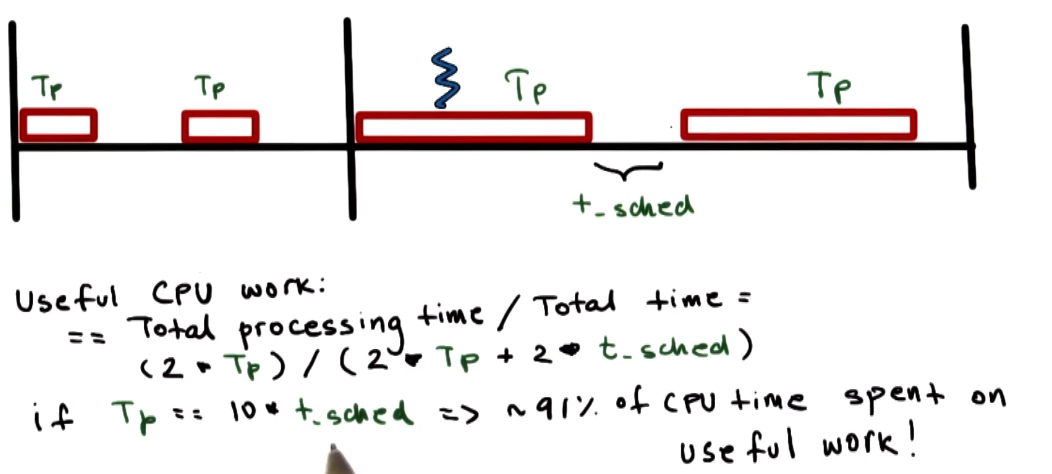 Tp Tp Tp Tp
t_sched
Useful CPU work:
== Total processing time / Total time =
(2 * Tp) / (2 * Tp + 2 * t_sched)
if Tp == 10 * t_sched => ~91% of CPU time spent on
useful work!